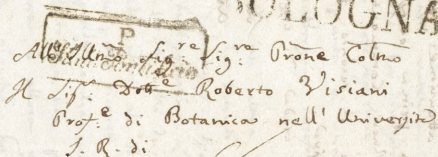 BOLOGNA
P
All' Illmo Sig:re Sig:re Prōne Colmo
Il Sig: Dotte Roberto Visiani
Profe: di Botanica nell' Università
I. R. di